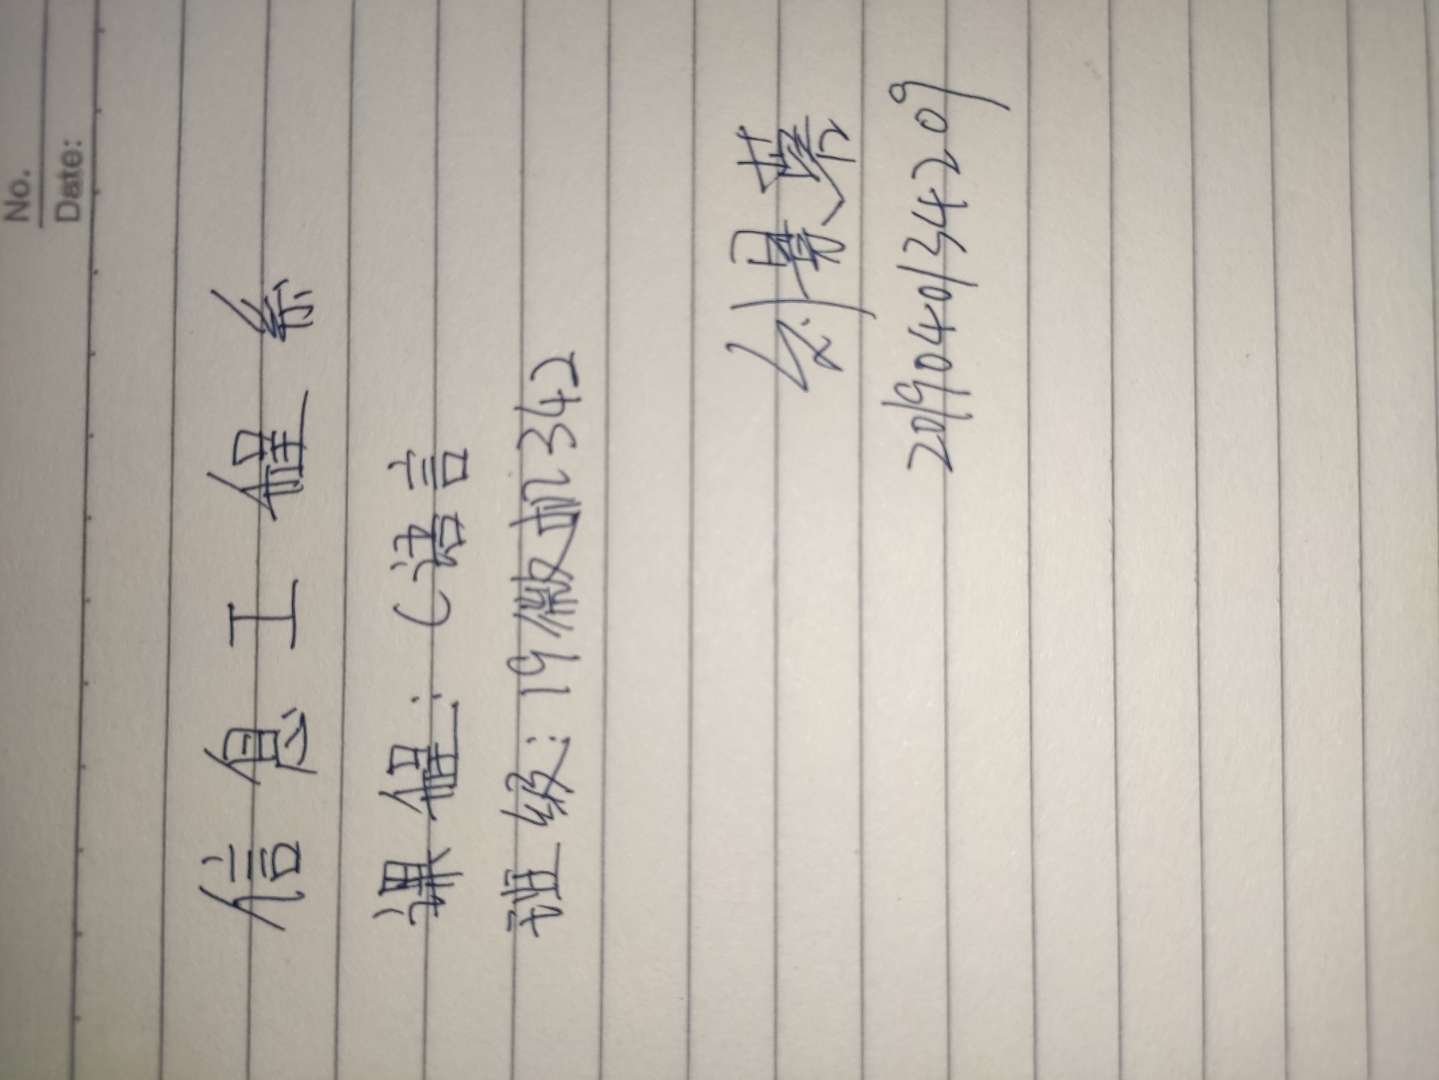 No.
Date:
信息工程系
课程:C语言
班级:19微机342
刘景
2019040134209